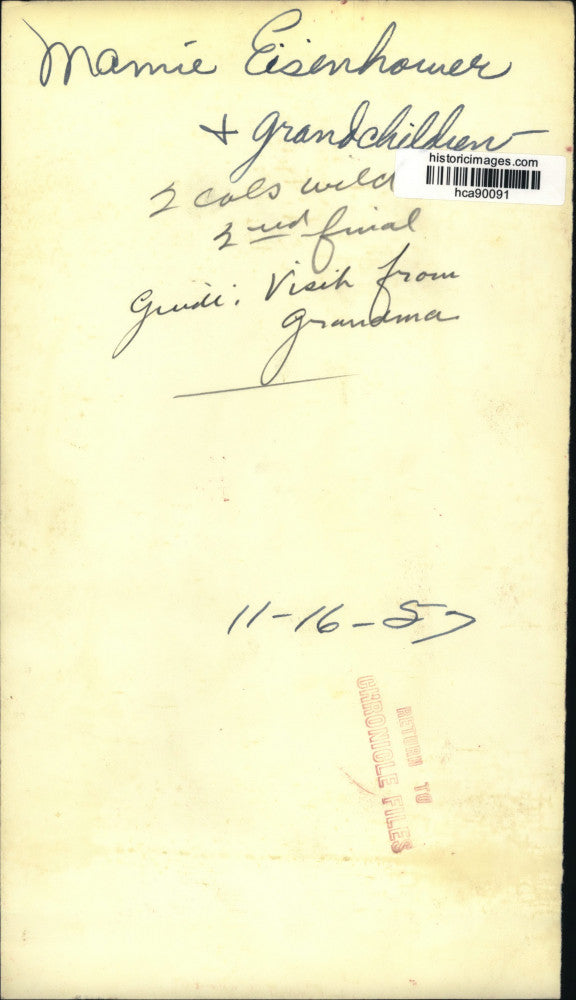 Mamie Eisenhower
+ grandchildren
historicimages.com
hca90091
2 cols wild
2nd final
Guide: Visit from
grandma
11-16-57
RETURN TO
CHRONICLE FILES